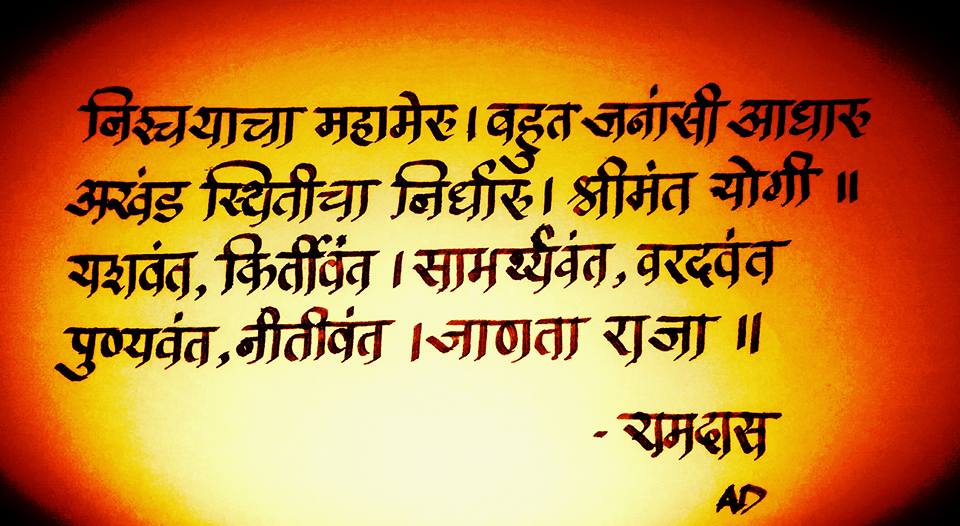 निश्चयाचा महामेरु । बहुत जनांसी आधारु
अखंड स्थितीचा निर्धारु । श्रीमंत योगी ॥
यशवंत, किर्तीवंत । सामर्थ्यवंत, वरदवंत
पुण्यवंत, नीतीवंत । जाणता राजा ॥
- रामदास
AD